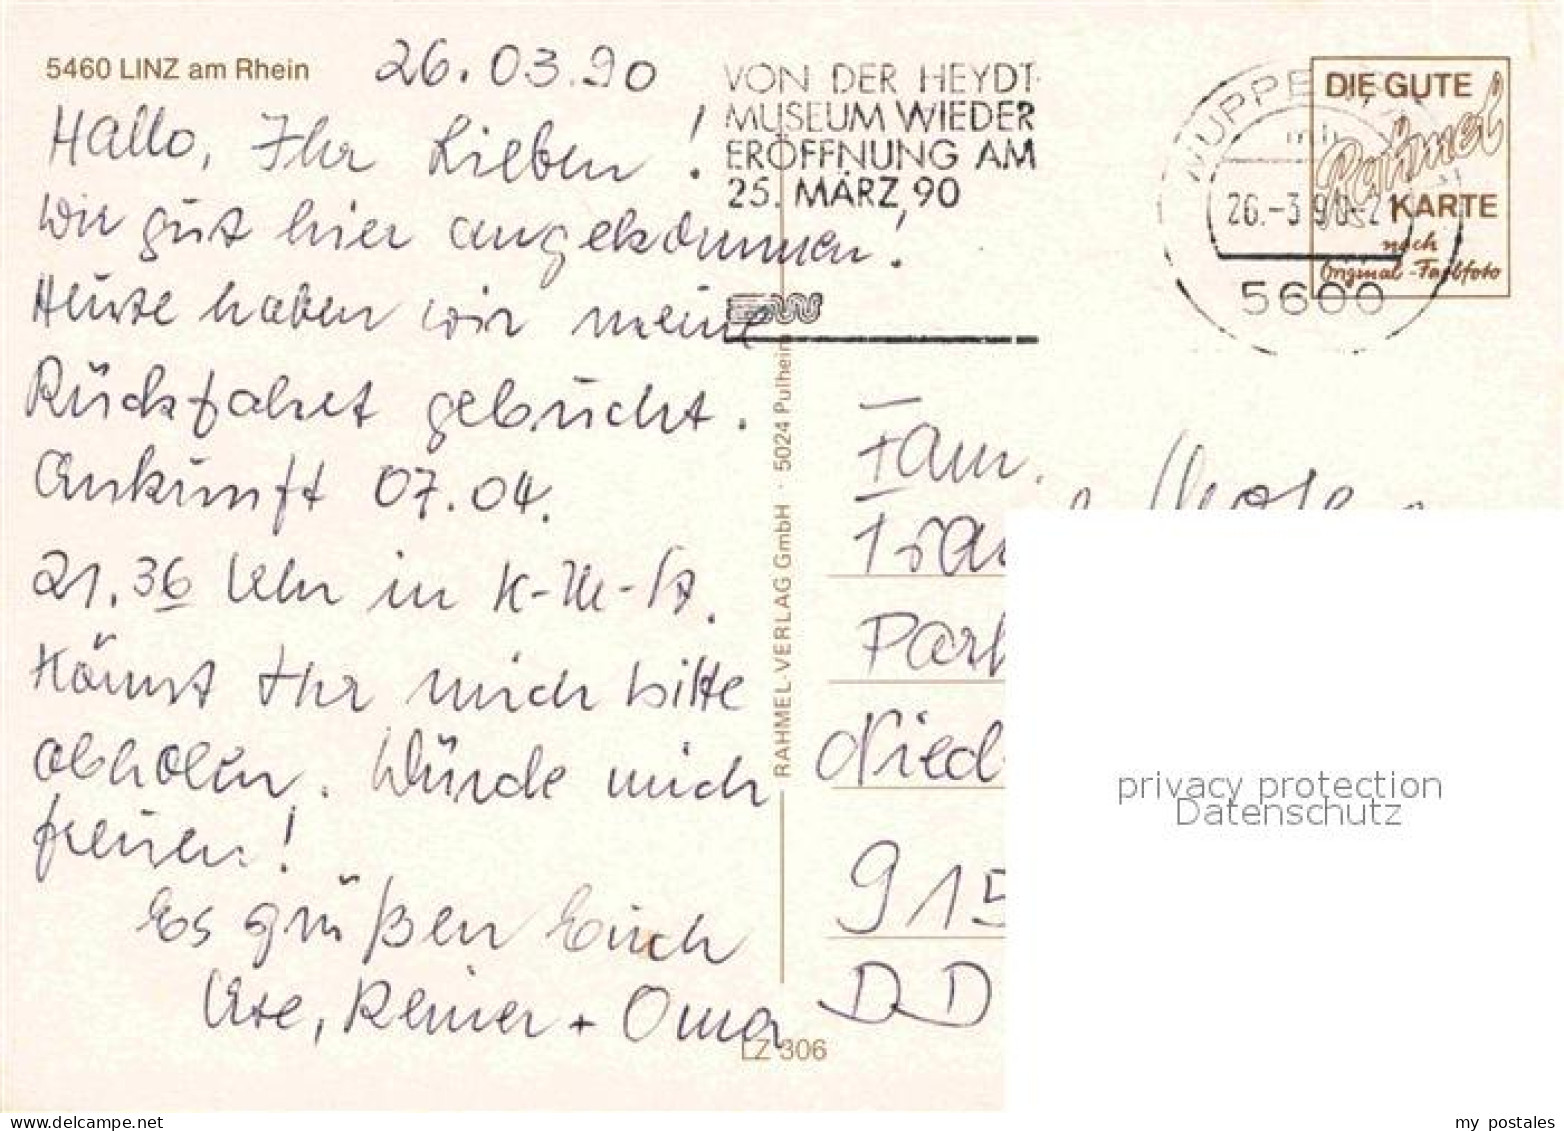 5460 LINZ am Rhein
26.03.90
Hallo, Ihr Lieben!
Wir gut hier angekommen!
Heute haben wir meine
Rückfahrt gebucht.
Ankunft 07.04.
21.36 Uhr in K-M-St.
Könnt Ihr mich bitte
abholen. Würde mich
freuen!
Es grüßen Euch
Ute, Reiner + Oma
LZ 306
RAHMEL-VERLAG GmbH · 5024 Pulheim
VON DER HEYDT-
MUSEUM WIEDER
ERÖFFNUNG AM
25. MÄRZ 90
WUPPE
26.-3.90-2
5600
DIE GUTE
Rahmel
KARTE
nach
Original-Farbfoto
Fam.
Nied
915
DD
privacy protection
Datenschutz
my postales